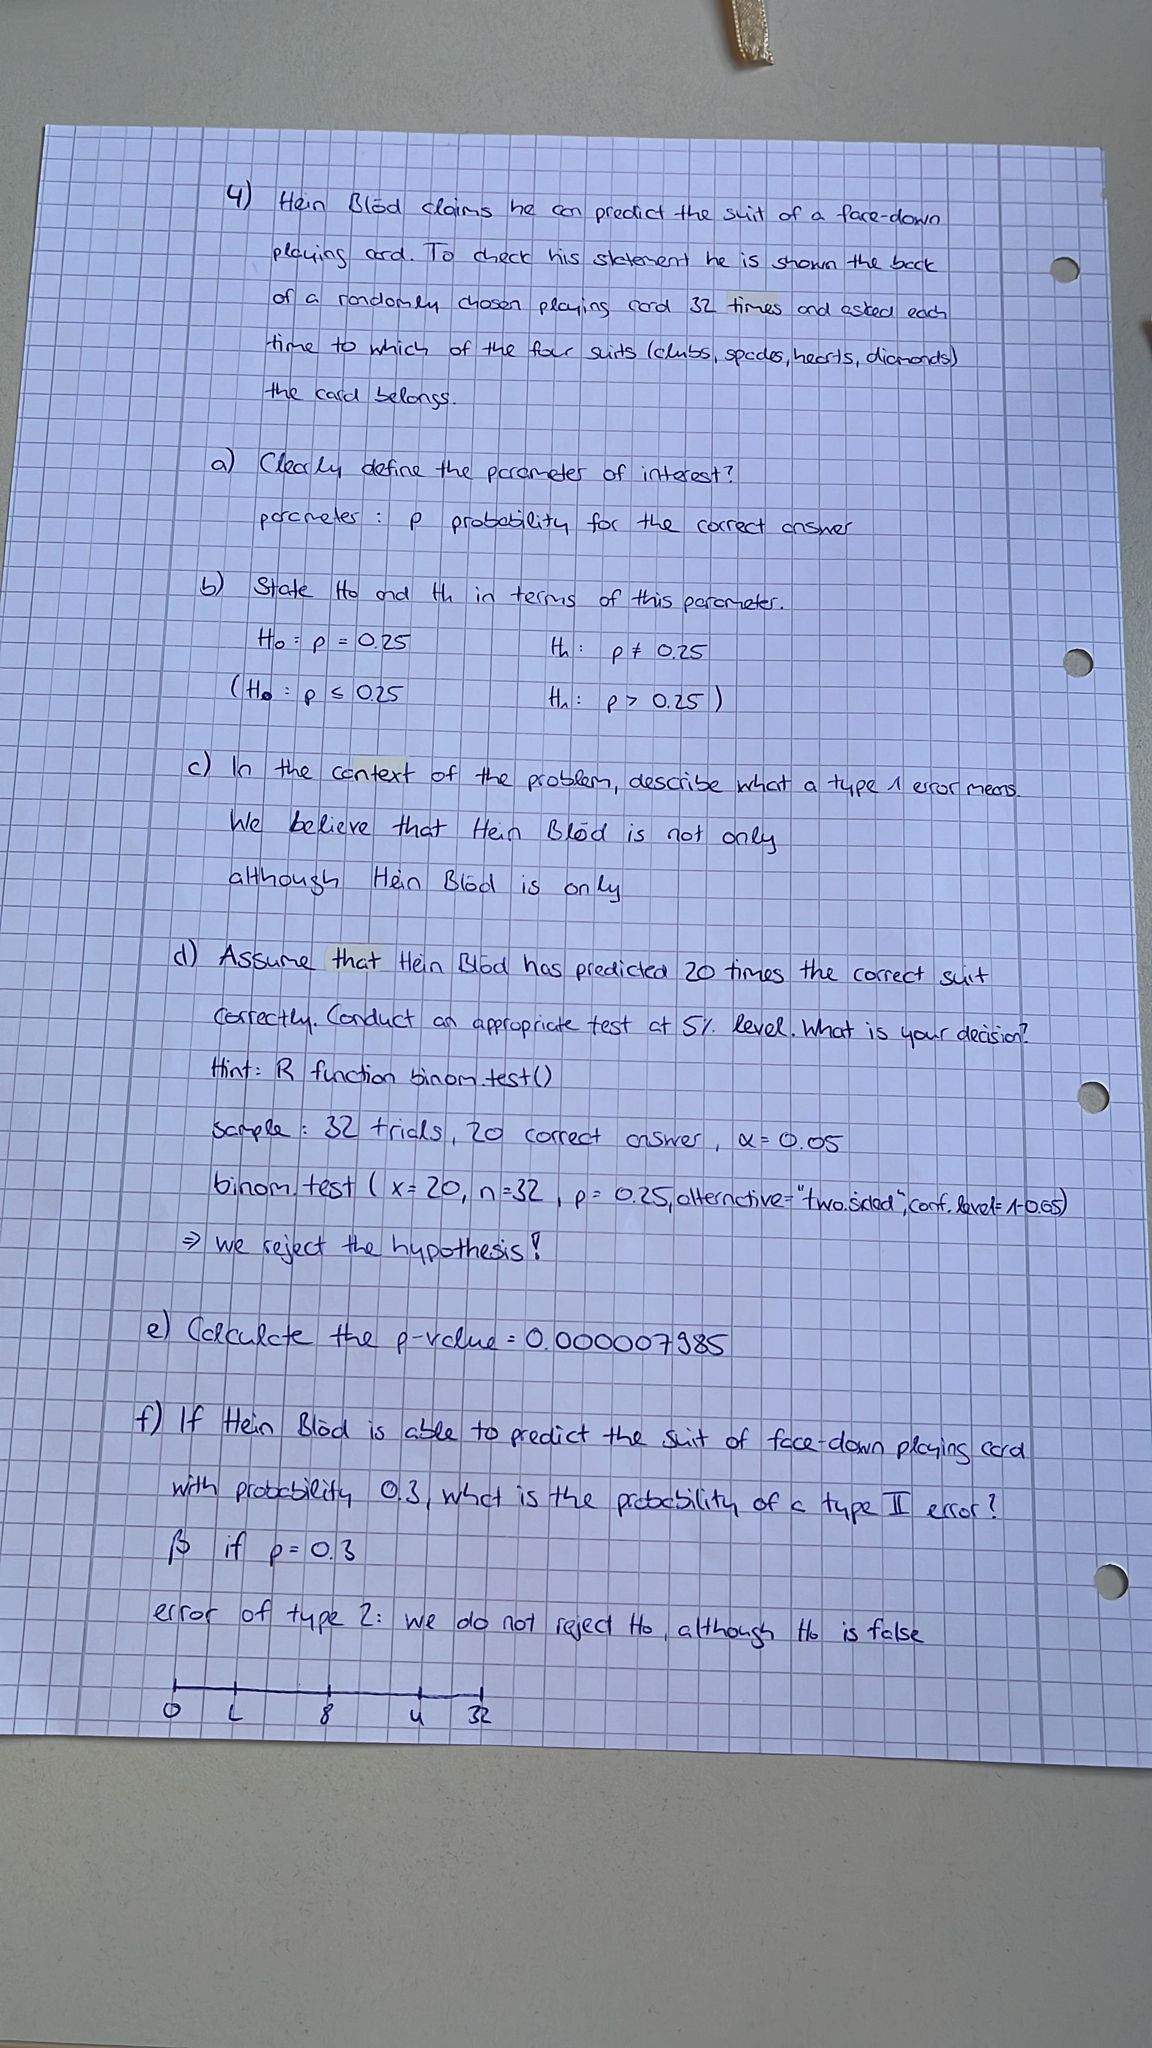 4) Hein Blöd claims he can predict the suit of a face-down
playing card. To check his statement he is shown the back
of a randomly chosen playing card 32 times and asked each
time to which of the four suits (clubs, spades, hearts, diamonds)
the card belongs.
a) Clearly define the parameter of interest?
parameter : p probability for the correct answer
b) State H0 and H1 in terms of this parameter.
H0 : p = 0.25 H1 : p ≠ 0.25
(H0 : p ≤ 0.25 H1 : p > 0.25)
c) In the context of the problem, describe what a type 1 error means.
We believe that Hein Blöd is not only
although Hein Blöd is only
d) Assume that Hein Blöd has predicted 20 times the correct suit
correctly. Conduct an appropriate test at 5% level. What is your decision?
Hint: R function binom.test()
sample : 32 trials, 20 correct answer, α = 0.05
binom.test (x=20, n=32, p= 0.25, alternative="two.sided", conf.level=1-0.05)
⇒ we reject the hypothesis!
e) Calculate the p-value = 0.000007985
f) If Hein Blöd is able to predict the suit of face-down playing card
with probability 0.3, what is the probability of a type II error?
β if p = 0.3
error of type 2: we do not reject H0, although H0 is false
0 L 8 u 32